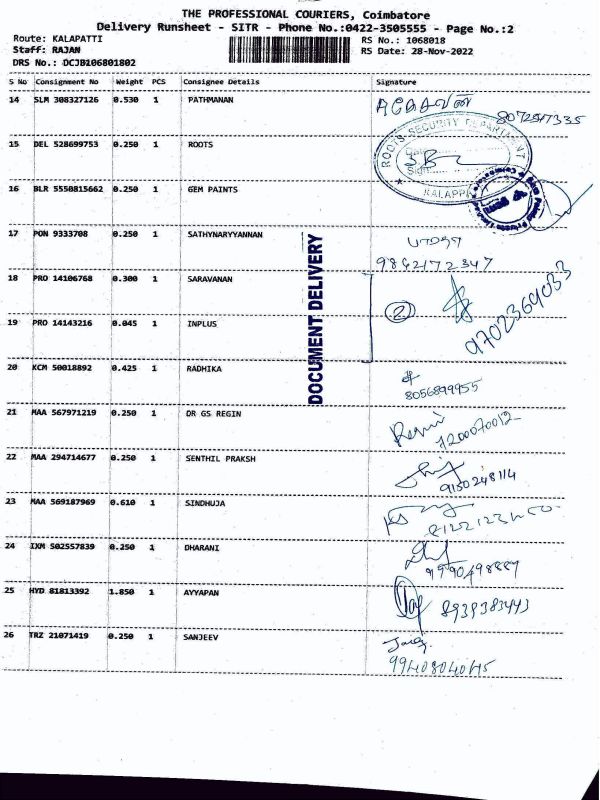 THE PROFESSIONAL COURIERS, Coimbatore
Delivery Runsheet - SITR - Phone No.:0422-3505555 - Page No.:2
Route: KALAPATTI RS No.: 1068018
Staff: RAJAN RS Date: 28-Nov-2022
DRS No.: DCJB106801802
S No Consignment No Weight PCS Consignee Details Signature
14 SLM 308327126 0.530 1 PATHMANAN
15 DEL 528699753 0.250 1 ROOTS
ROOTS-SECURITY DEPARTMENT
KALAPP
16 BLR 5550815662 0.250 1 GEM PAINTS
17 PON 9333708 0.250 1 SATHYNARYYANNAN
9842172347
18 PRO 14106768 0.300 1 SARAVANAN
2
9702364033
19 PRO 14143216 0.045 1 INPLUS
DOCUMENT DELIVERY
20 KCM 50018892 0.425 1 RADHIKA
8056899955
21 MAA 567971219 0.250 1 DR GS REGIN
7200070012
22 MAA 294714677 0.250 1 SENTHIL PRAKSH
9150248114
23 MAA 569187969 0.610 1 SINDHUJA
24 IXM 502557839 0.250 1 DHARANI
25 HYD 81813392 1.850 1 AYYAPAN
8939383443
26 TRZ 21071419 0.250 1 SANJEEV